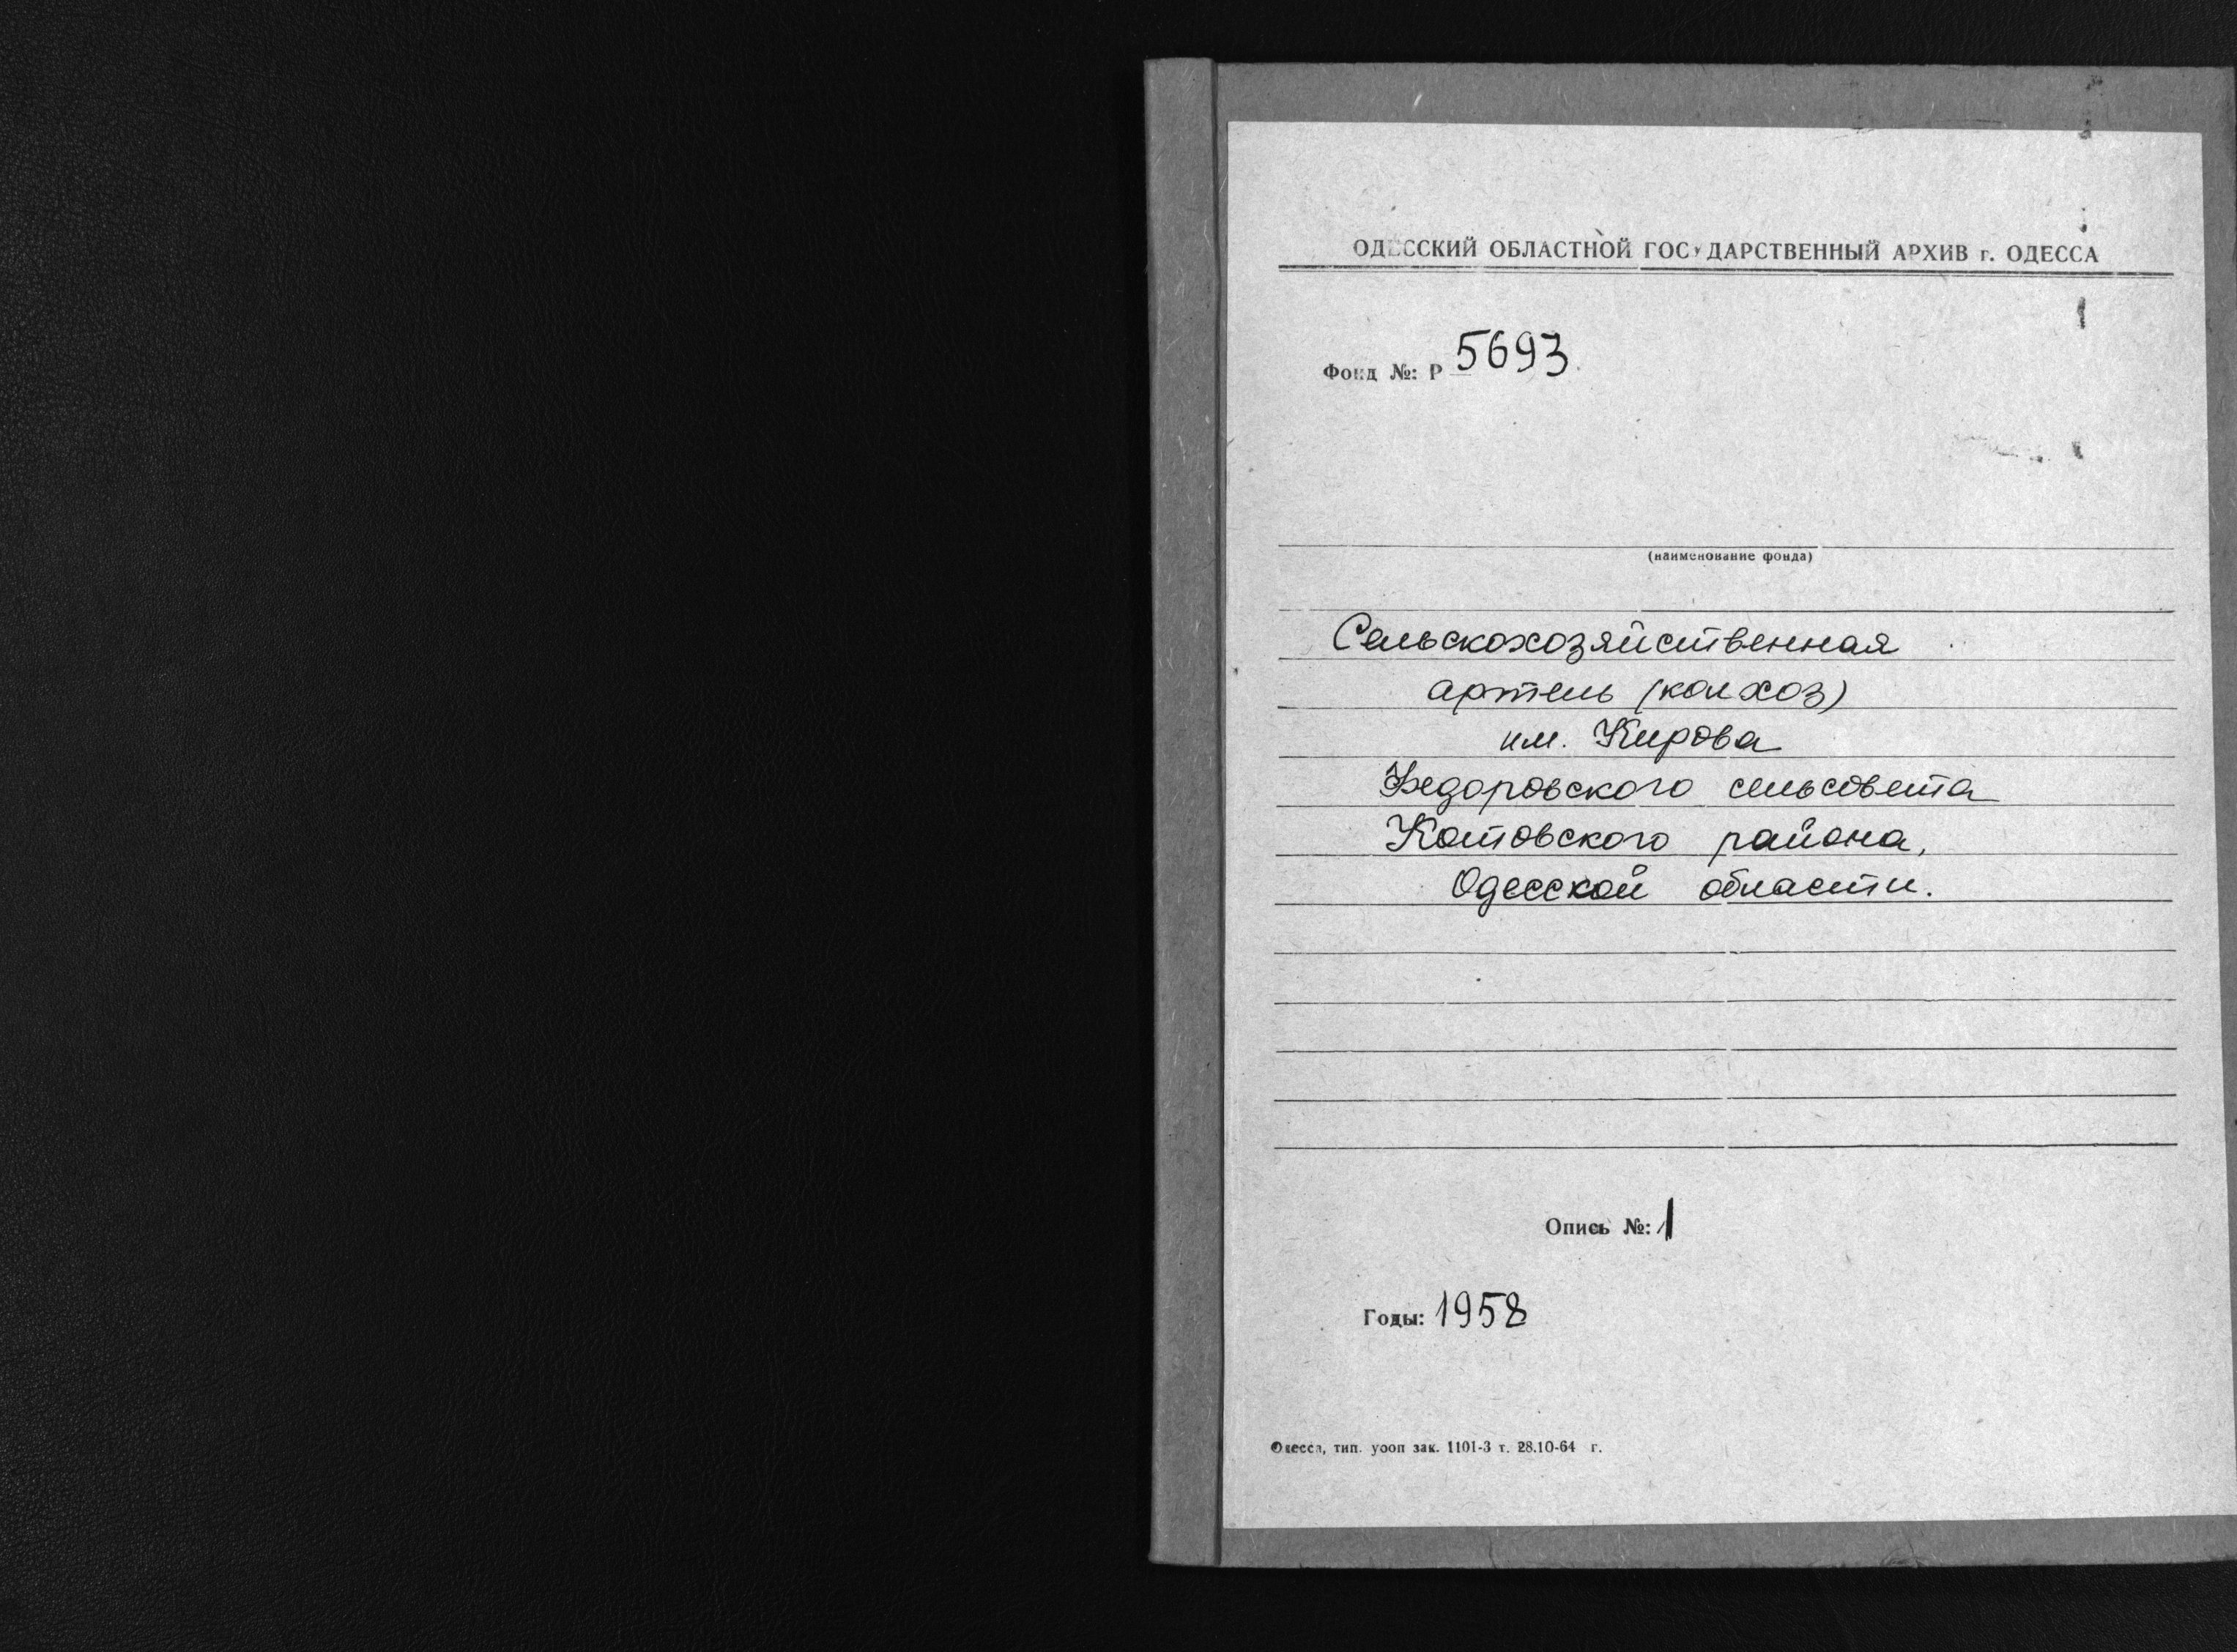 ОДЕССКИЙ ОБЛАСТНОЙ ГОСУДАРСТВЕННЫЙ АРХИВ г. ОДЕССА
Фонд №: Р 5693
(наименование фонда)
Сельскохозяйственная
артель (колхоз)
им. Кирова
Федоровского сельсовета
Котовского района,
Одесской области.
Опись №: 1
Годы: 1958
Одесса, тип. уооп зак. 1101-3 т. 28.10-64 г.